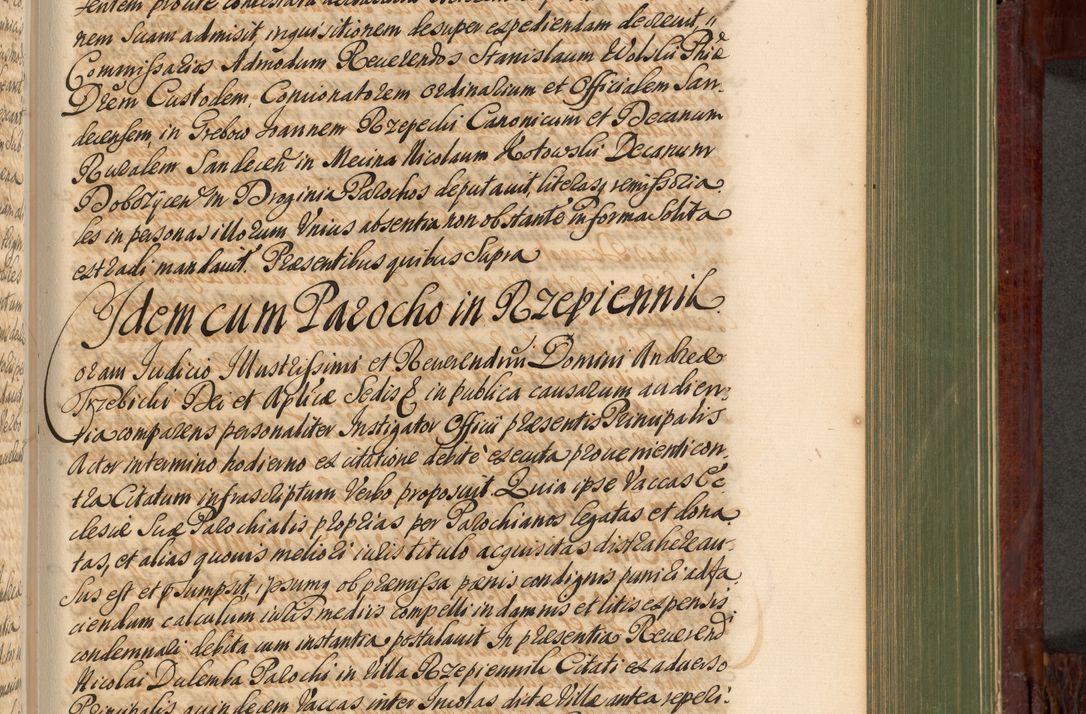 nem suam admisit, inquisitionem desuper expediendam decrevit,
Commissarios Admodum Reverendos Stanislaum Wolski Phiæ
Drem Custodem, Concionatorem ordinarium et Officialem San-
decensem, in Grebow Joannem Rzepecki Canonicum et Decanum
Ruralem Sandecen in Mecina Nicolaum Kotowski Decanum
Dobczycen in Droginia Parochos deputavit, literasq remissoria
les in personas illorum Unius absentia non obstante in forma solita
extradi mandavit. Præsentibus quibus supra
Idem cum Parocho in Rzepiennik
Coram Judicio Illustrissimi et Reverendmi Domini Andreæ
Trzebicki Dei et Aplicæ Sedis E in publica causarum audien-
tia comparens personaliter Instigator Officii præsentis Principalis
Actor in termino hodierno ex citatione debite executa provenienti con
tra Citatum infrascriptum Verbo proposuit Quia ipse Vaccas Ec
clesiæ suæ Parochialis proprias per Parochianos legatas et dona
tas, et alias quovis meliori iuris titulo acquisitas distrahere au-
sus est et præsumpsit, ipsumq ob præmissa pænis condignis puniri ad fa
ciendum calculum iuris mediis compelli in damnis et litis expensis
condemnari debita cum instantia postulavit In præsentia Reverend
Nicolai Dulemba Parochi in Villa Rzepiennik Citati ex adverso
Principalis quindecem Vaccas inter Incolas dictæ Villæ antea reperi-